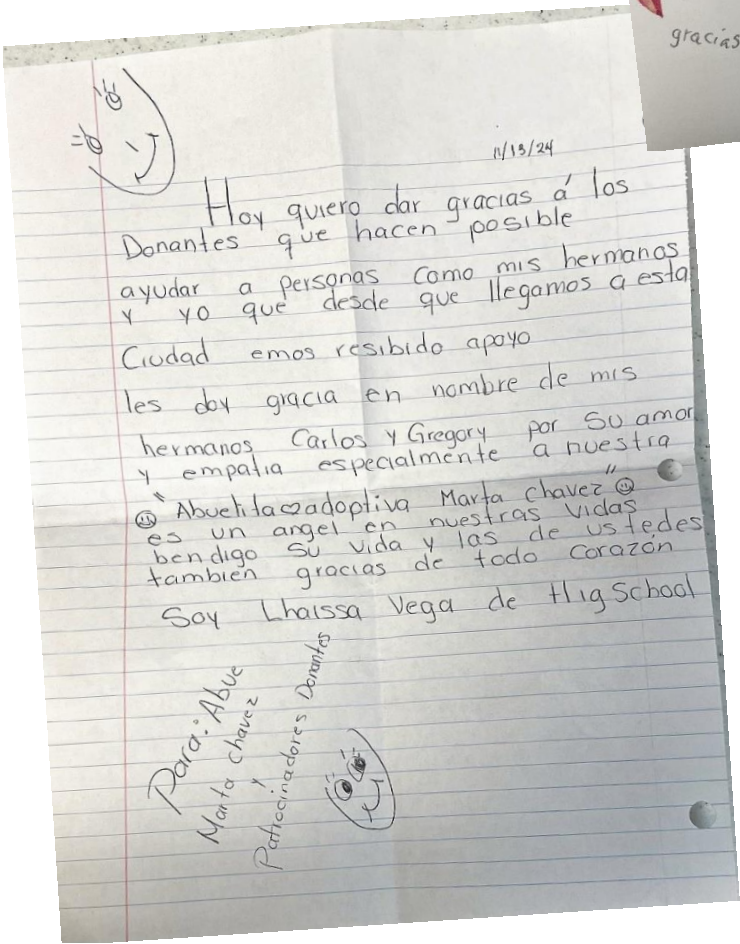 gracias
11/13/24
Hoy quiero dar gracias á los
Donantes que hacen posible
ayudar a personas como mis hermanos
y yo que desde que llegamos a esta
Ciudad emos resibido apoyo
les doy gracia en nombre de mis
hermanos Carlos y Gregory por su amor
y empatia especialmente a nuestra
"Abuelita adoptiva Marta Chavez"
es un angel en nuestras vidas
bendigo su vida y las de ustedes
tambien gracias de todo corazón
Soy Lhaissa Vega de Hig School
Para: Abue
Marta Chavez
y
Patrocinadores Donantes